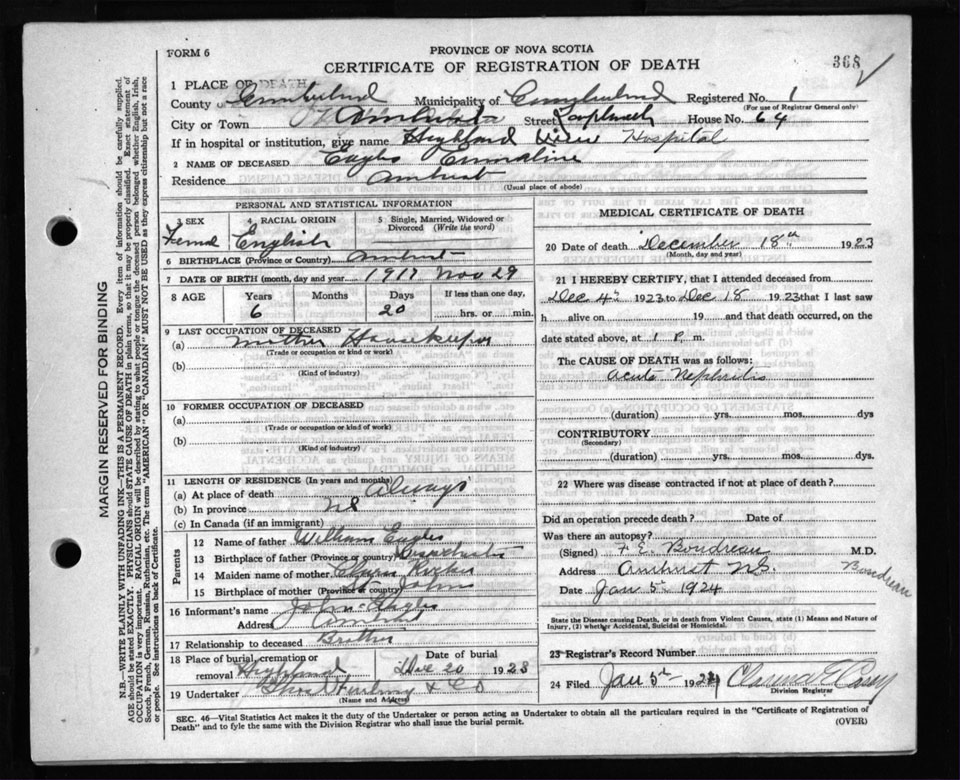 FORM 6
PROVINCE OF NOVA SCOTIA
CERTIFICATE OF REGISTRATION OF DEATH
368
1 PLACE OF DEATH
County of Cumberland Municipality of Cumberland Registered No. 1
(For use of Registrar General only)
City or Town Street House No. 64
If in hospital or institution, give name Highland View Hospital
2 NAME OF DECEASED Eagles Emmaline
Residence Amherst
(Usual place of abode)
PERSONAL AND STATISTICAL INFORMATION
3 SEX
4 RACIAL ORIGIN
5 Single, Married, Widowed or Divorced (Write the word)
Female English
6 BIRTHPLACE (Province or Country) Amherst
7 DATE OF BIRTH (month, day and year) 1917 Nov 29
8 AGE
Years Months Days If less than one day,
6 20 hrs. or min.
9 LAST OCCUPATION OF DECEASED
(a) Mother Housekeeper
(Trade or occupation or kind or work)
(b)
(Kind of industry)
10 FORMER OCCUPATION OF DECEASED
(a)
(Trade or occupation or kind of work)
(b)
(Kind of industry)
11 LENGTH OF RESIDENCE (In years and months)
(a) At place of death Always
(b) In province NS
(c) In Canada (if an immigrant)
Parents
12 Name of father William Eagles
13 Birthplace of father (Province or country)
14 Maiden name of mother
15 Birthplace of mother (Province or country)
16 Informant's name John Eagles
Address Amherst
17 Relationship to deceased Brother
18 Place of burial, cremation or removal Highland
Date of burial
Dec 20 1923
19 Undertaker & Co
(Name and Address)
MEDICAL CERTIFICATE OF DEATH
20 Date of death December 18th 1923
(Month, day and year)
21 I HEREBY CERTIFY, that I attended deceased from
Dec 4th 1923 to Dec 18 1923 that I last saw
h alive on 19 and that death occurred, on the
date stated above, at 1 P. m.
The CAUSE OF DEATH was as follows:
Acute Nephritis
(duration) yrs. mos. dys
CONTRIBUTORY
(Secondary)
(duration) yrs. mos. dys.
22 Where was disease contracted if not at place of death?
Did an operation precede death? Date of
Was there an autopsy?
(Signed) F. E. Boudreau M.D.
Boudreau
Address Amherst N.S.
Date Jan 5 1924
State the Disease causing Death, or in death from Violent Causes, state (1) Means and Nature of Injury, (2) whether Accidental, Suicidal or Homicidal.
23 Registrar's Record Number
24 Filed Jan 5th 1924 Clarence E Casey
Division Registrar
SEC. 46—Vital Statistics Act makes it the duty of the Undertaker or person acting as Undertaker to obtain all the particulars required in the "Certificate of Registration of
Death" and to fyle the same with the Division Registrar who shall issue the burial permit.
(OVER)
MARGIN RESERVED FOR BINDING
N.B.—WRITE PLAINLY WITH UNFADING INK—THIS IS A PERMANENT RECORD. Every item of information should be carefully supplied.
AGE should be stated EXACTLY. PHYSICIANS should STATE CAUSE OF DEATH in plain terms, so that it may be properly classified. Exact statement of
OCCUPATION is very important. RACIAL ORIGIN will be described by stating to what people or tongue the deceased person belonged whether English, Irish,
Scotch, French, German, Russian, Ruthenian, etc. The terms "AMERICAN" OR "CANADIAN" MUST NOT BE USED as they express citizenship but not a race
or people. See instructions on back of Certificate.